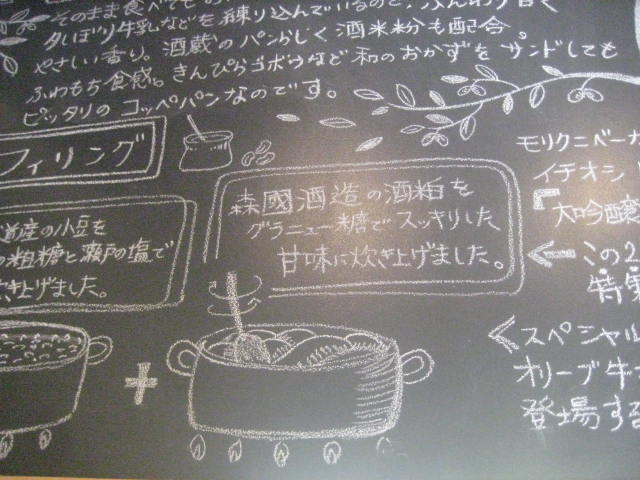 そのまま食べても
夕しぼり牛乳などを練り込んでいるので、ふんわり甘く
やさしい香り。酒蔵のパンらしく酒米粉も配合。
ふわもち食感。きんぴらゴボウなど和のおかずをサンドしても
ピッタリのコッペパンなのです。
フィリング
道産の小豆を
の粗糖と瀬戸の塩で
き上げました。
森國酒造の酒粕を
グラニュー糖でスッキリした
甘味に炊き上げました。
+
モリクニベーカ
イチオシ
「大吟醸
この2
特集
スペシャル
オリーブ牛
登場する